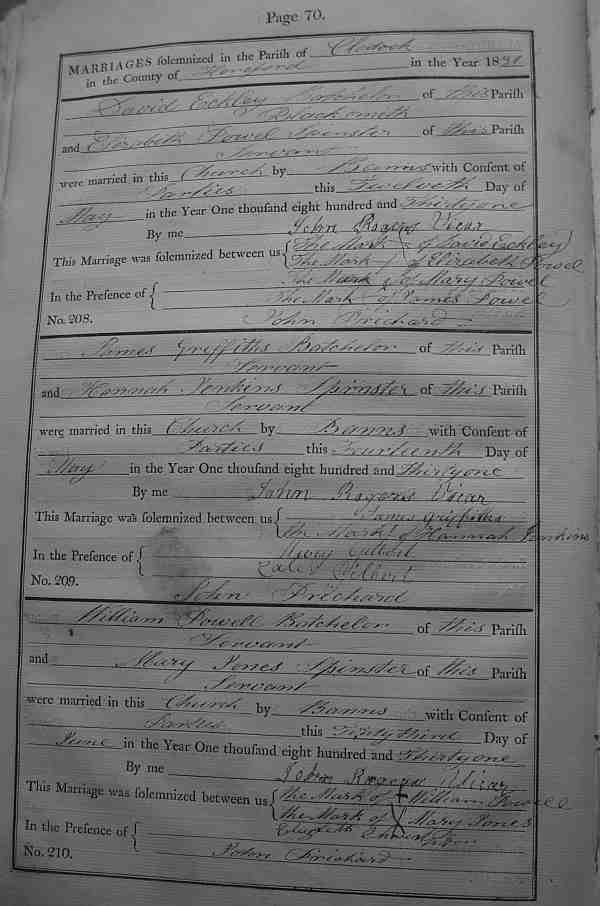 Page 70.
MARRIAGES solemnized in the Parish of Clodock
in the County of Hereford in the Year 1831
David Eckley Batchelor of this Parish
Blacksmith
and Elizabeth Powel Spinster of this Parish
Servant
were married in this Church by Banns with Consent of
Parties this Twelveth Day of
May in the Year One thousand eight hundred and Thirtyone
By me John Rogers Vicar
This Marriage was solemnized between us { The Mark of David Eckley
The Mark of Elizabeth Powel
In the Presence of { The Mark of Mary Powel
The Mark of James Powel
No. 208. John Prichard
James Griffiths Batchelor of this Parish
Servant
and Hannah Jenkins Spinster of this Parish
Servant
were married in this Church by Banns with Consent of
Parties this Fourteenth Day of
May in the Year One thousand eight hundred and Thirtyone
By me John Rogers Vicar
This Marriage was solemnized between us { James Griffiths
the Mark of Hannah Jenkins
In the Presence of { Gilbert
Gilbert
No. 209. John Prichard
William Powell Batchelor of this Parish
Servant
and Mary Jones Spinster of this Parish
Servant
were married in this Church by Banns with Consent of
Parties this Day of
June in the Year One thousand eight hundred and Thirtyone
By me John Rogers Vicar
This Marriage was solemnized between us { the Mark of + William Powell
the Mark of Mary Jones
In the Presence of { Elizabeth
No. 210. John Prichard